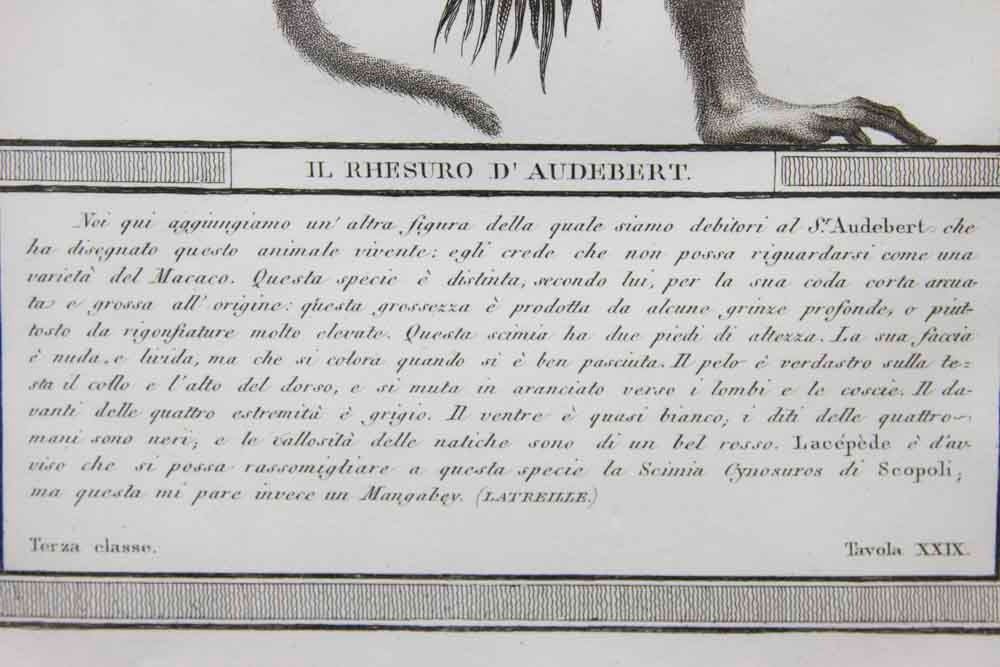 IL RHESURO D' AUDEBERT.
Noi qui aggiungiamo un' altra figura della quale siamo debitori al S.r Audebert che
ha disegnato questo animale vivente: egli crede che non possa riguardarsi come una
varietà del Macaco. Questa specie è distinta, secondo lui, per la sua coda corta arcua-
ta e grossa all' origine: questa grossezza è prodotta da alcune grinze profonde, o piut-
tosto da rigonfiature molto elevate. Questa scimia ha due piedi di altezza. La sua faccia
è nuda, e livida, ma che si colora quando si è ben pasciuta. Il pelo è verdastro sulla te-
sta il collo e l'alto del dorso, e si muta in aranciato verso i lombi e le coscie. Il da-
vanti delle quattro estremità è grigio. Il ventre è quasi bianco, i diti delle quattro
mani sono neri, e le callosità delle natiche sono di un bel rosso. Lacépède è d'av-
viso che si possa rassomigliare a questa specie la Scimia Cynosuros di Scopoli;
ma questa mi pare invece un Mangabey. (LATREILLE.)
Terza classe.
Tavola XXIX.